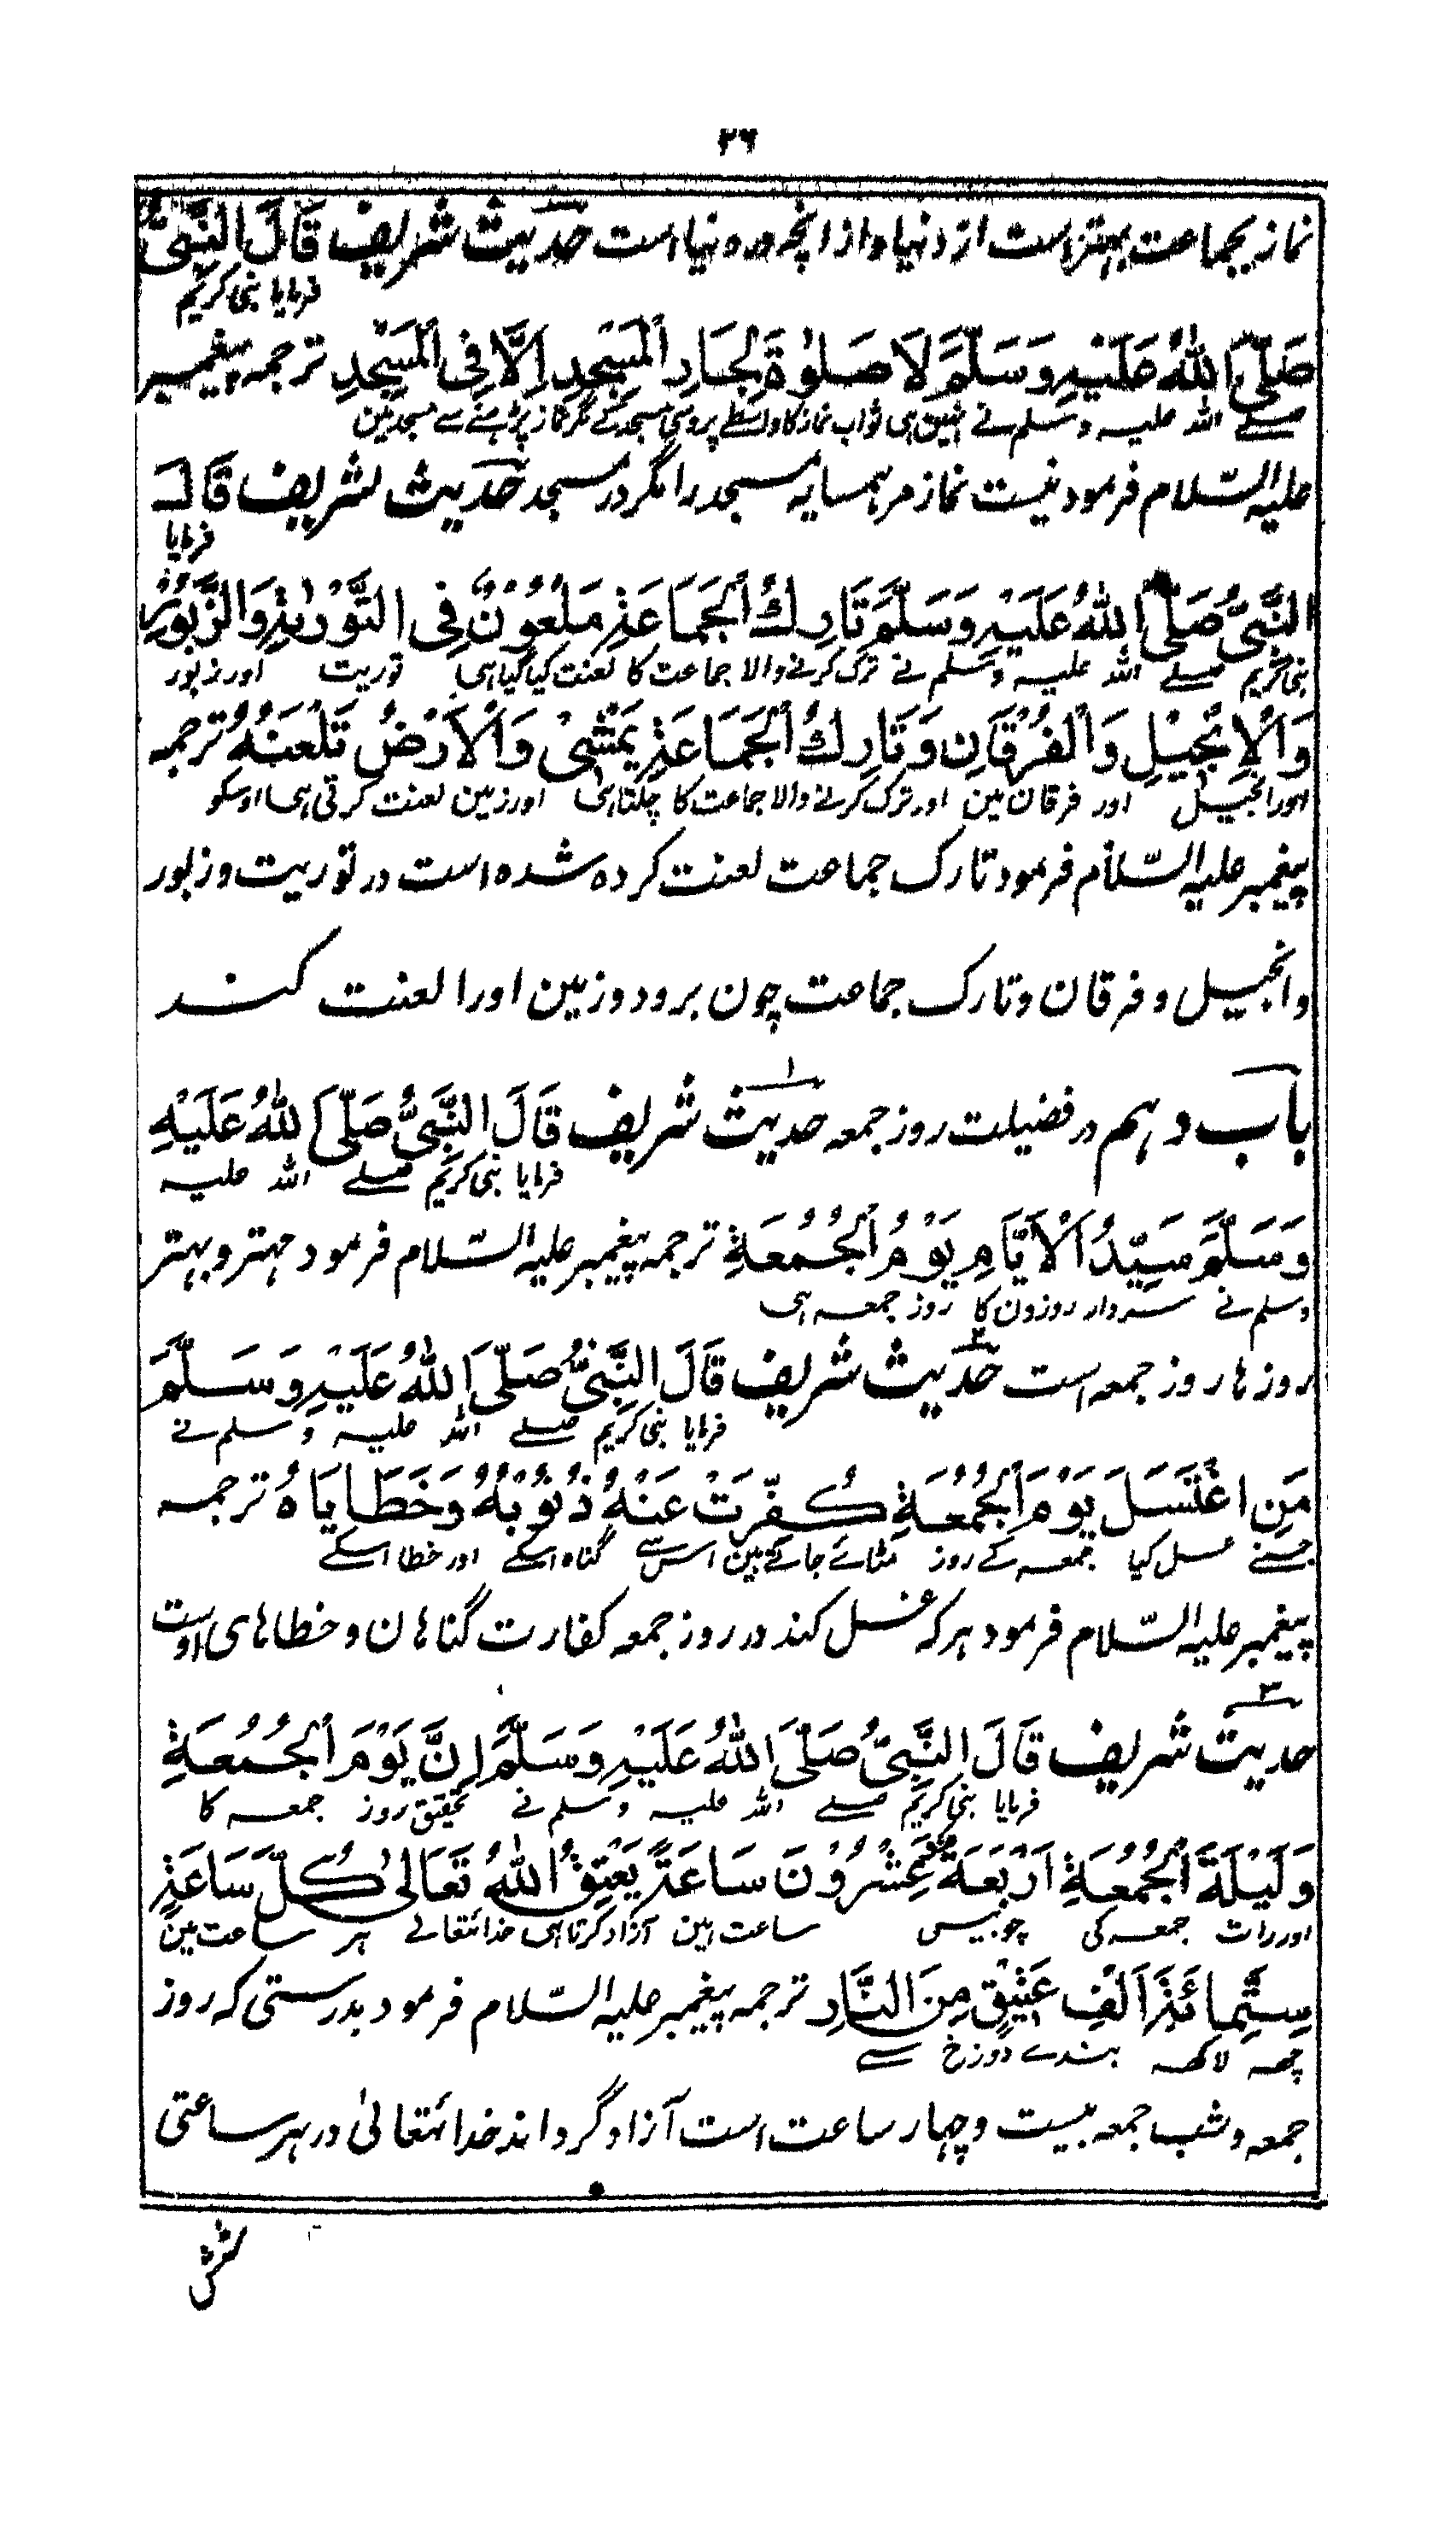 ۲۶
نماز بجماعت بهتراست از دنیا و از انچه در دنیا است حدیث شریف قَالَ النَّبِیُّ
فرمایا نبی کریم
صَلَّی اللهُ عَلَیْهِ وَسَلَّمَ لَا صَلٰوةَ لِجَارِ الْمَسْجِدِ اِلَّا فِی الْمَسْجِدِ ترجمہ پیغمبر
صلے اللہ علیہ وسلم نے نہین ہی ثواب نماز کا واسطے پروسی مسجد کے مگر نماز پڑہنے سے مسجد مین
علیہ السّلام فرمود نیست نماز مر ہمسایہ مسجد را مگر در مسجد حدیث شریف قَالَ
فرمایا
النَّبِیُّ صَلَّی اللهُ عَلَیْهِ وَسَلَّمَ تَارِكُ الْجَمَاعَةِ مَلْعُوْنٌ فِی التَّوْرٰىةِ وَالزَّبُوْرِ
نبی کریم صلے اللہ علیہ وسلم نے ترک کرنے والا جماعت کا لعنت کیا گیا ہی توریت اور زبور
وَالْاِنْجِیْلِ وَالْفُرْقَانِ وَتَارِكُ الْجَمَاعَةِ یَمْشِیْ وَالْاَرْضُ تَلْعَنُهُ ترجمہ
اور انجیل اور فرقان مین اور ترک کرنے والا جماعت کا چلتا ہی اور زمین لعنت کرتی ہی اوسکو
پیغمبر علیہ السّلام فرمود تارک جماعت لعنت کردہ شدہ است در توریت و زبور
و انجیل و فرقان و تارک جماعت چون برود و زمین اورا لعنت کند
باب دہم در فضیلت روز جمعہ حدیث ۱ شریف قَالَ النَّبِیُّ صَلَّی اللهُ عَلَیْهِ
فرمایا نبی کریم صلے اللہ علیہ
وَسَلَّمَ سَیِّدُ الْاَیَّامِ یَوْمُ الْجُمُعَةِ ترجمہ پیغمبر علیہ السّلام فرمود مہتر و بہتر
وسلم نے سردار روزون کا روز جمعہ ہی
روزہا روز جمعہ است حدیث ۲ شریف قَالَ النَّبِیُّ صَلَّی اللهُ عَلَیْهِ وَسَلَّمَ
فرمایا نبی کریم صلے اللہ علیہ وسلم نے
مَنِ اغْتَسَلَ یَوْمَ الْجُمُعَةِ كُفِّرَتْ عَنْهُ ذُنُوْبُهُ وَخَطَایَاهُ ترجمہ
جسنے غسل کیا جمعہ کے روز مٹائے جاتے ہین اس سے گناہ اسکے اور خطا اسکے
پیغمبر علیہ السّلام فرمود ہرکہ غسل کند در روز جمعہ کفارت گناہان و خطاہای اوست
حدیث ۳ شریف قَالَ النَّبِیُّ صَلَّی اللهُ عَلَیْهِ وَسَلَّمَ اِنَّ یَوْمَ الْجُمُعَةِ
فرمایا نبی کریم صلے اللہ علیہ وسلم نے تحقیق روز جمعہ کا
وَلَیْلَةَ الْجُمُعَةِ اَرْبَعَةٌ وَعِشْرُوْنَ سَاعَةً یَعْتِقُ اللهُ تَعَالٰی كُلَّ سَاعَةٍ
اور رات جمعہ کی چوبیس ساعت ہین آزاد کرتا ہی خدائتعالے ہر ساعت مین
سِتَّمِائَةِ اَلْفِ عَتِیْقٍ مِنَ النَّارِ ترجمہ پیغمبر علیہ السّلام فرمود بدرستی کہ روز
چھہ لاکھہ بندے دوزخ سے
جمعہ و شب جمعہ بیست و چہار ساعت است آزاد گرداند خدائتعالیٰ در ہر ساعتی